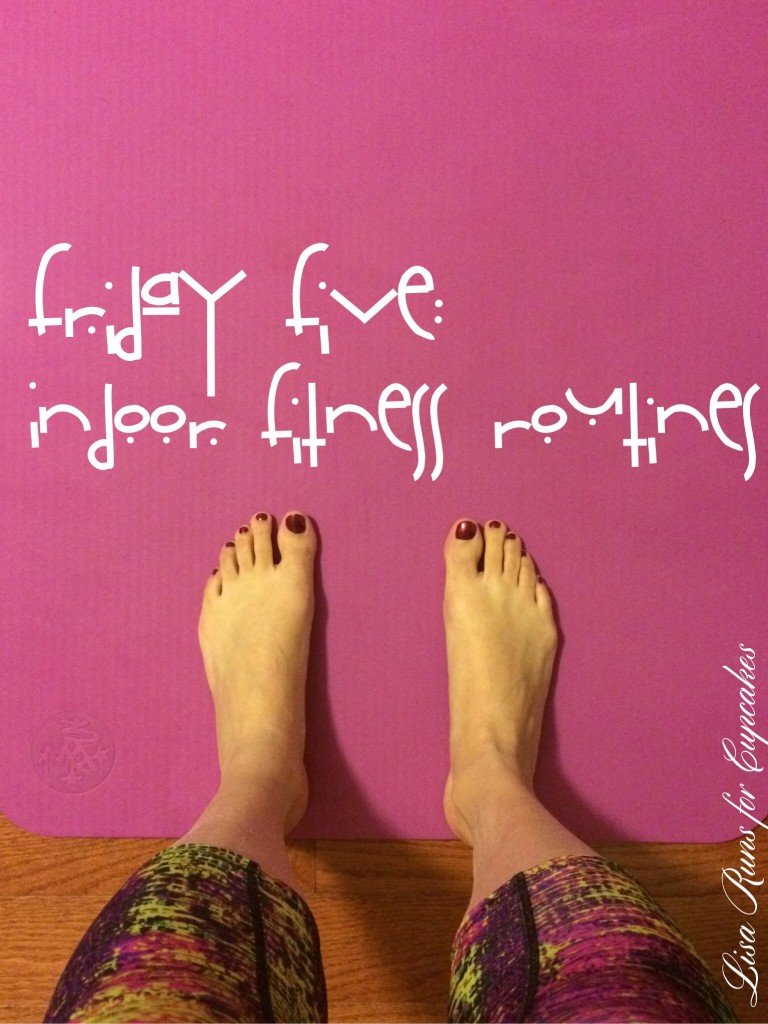 friday five:
indoor fitness routines
Lisa Runs for Cupcakes